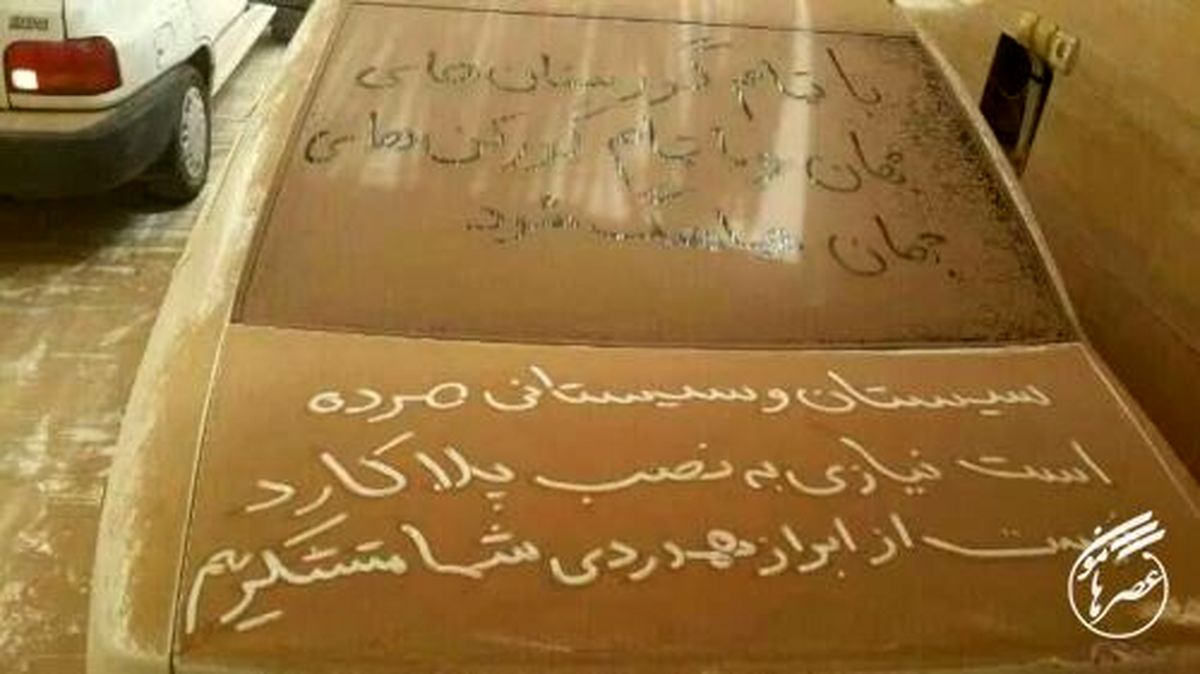 با تمام گورستان‌های
جهان و با تمام گورکن‌های
جهان
شود.
سیستان و سیستانی مرده
است نیازی به نصب پلاکارد
نیست از ابراز همدردی شما متشکریم
عصر هامون